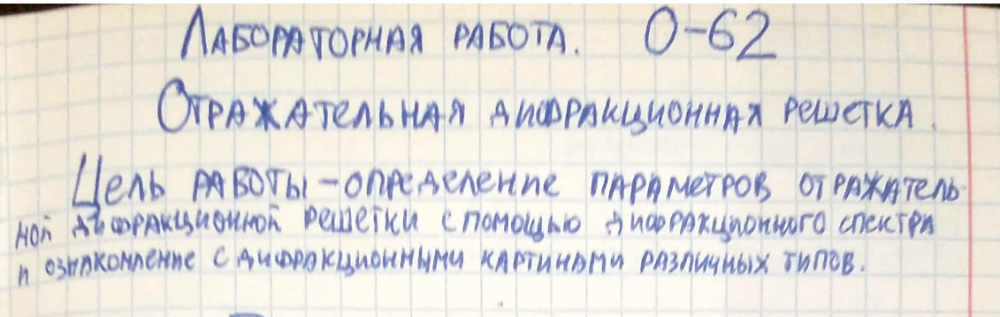 Лабораторная работа. О-62
Отражательная дифракционная решетка.
Цель работы - определение параметров отражатель-
ной дифракционной решетки с помощью дифракционного спектра
и ознакомление с дифракционными картинами различных типов.